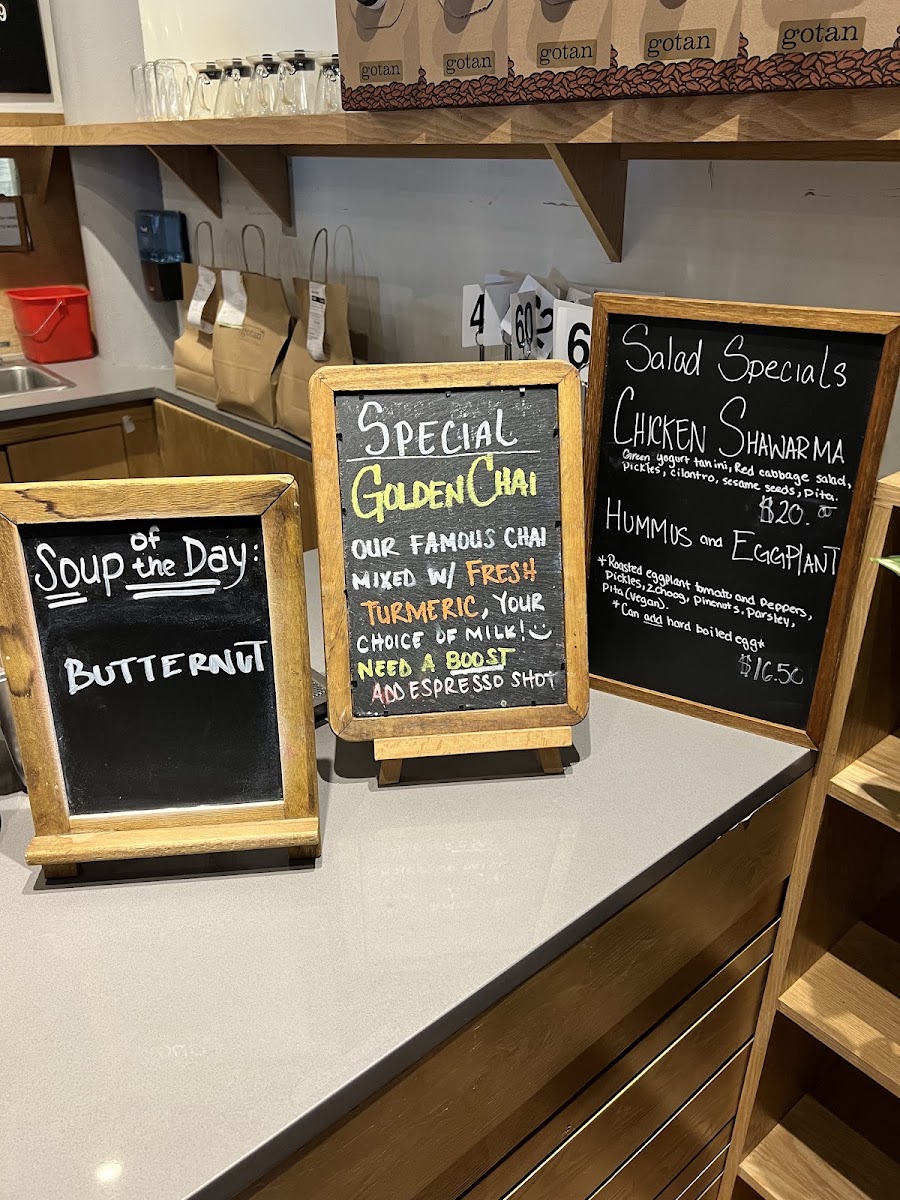 9
gotan
gotan
gotan
gotan
gotan
gotan
4
60
6
Soup of the Day:
BUTTERNUT
SPECIAL
GOLDEN CHAI
OUR FAMOUS CHAI
MIXED W/ FRESH
TURMERIC, YOUR
CHOICE OF MILK!
NEED A BOOST
ADD ESPRESSO SHOT
Salad Specials
CHICKEN SHAWARMA
Green yogurt tanini, Red cabbage salad,
pickles, cilantro, sesame seeds, pita.
$20.00
HUMMUS and EGGPLANT
*Roasted eggplant tomato and peppers,
Pickles, Zchoog, pinenuts, parsley,
Pita (vegan).
*Can add hard boiled egg*
$16.50